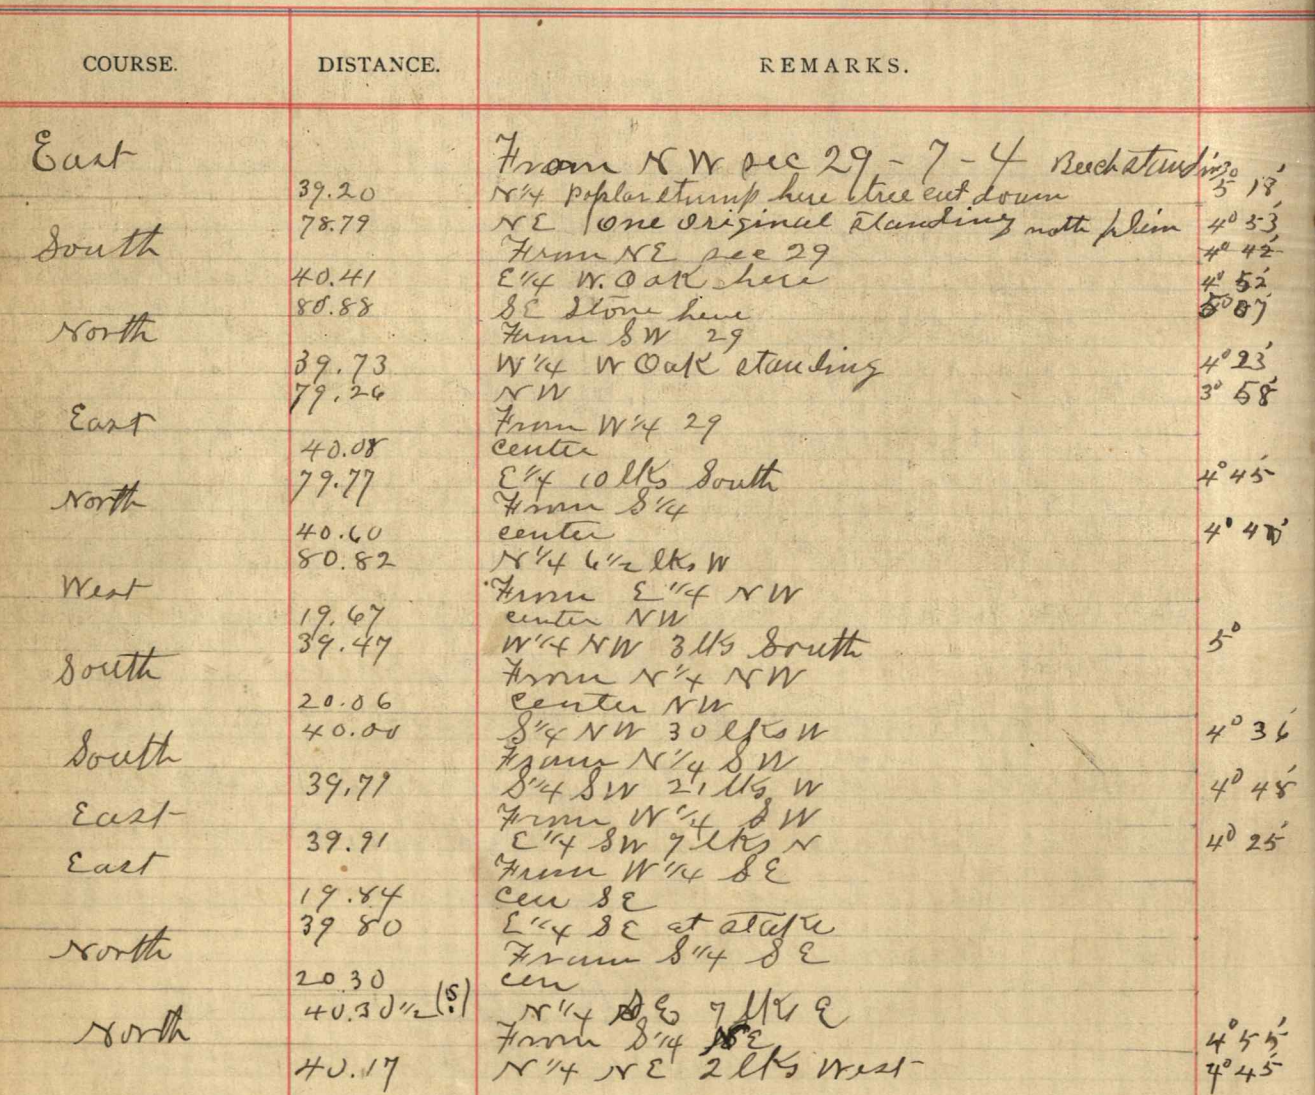 COURSE. DISTANCE. REMARKS.
East From NW sec 29 - 7 - 4 Beech standing
39.20 N¼ Poplar stump here tree cut down 5° 18'
78.79 NE one original standing 4° 53'
South From NE sec 29 4° 42'
40.41 E¼ W. Oak here 4° 52'
80.88 SE Stone here 5° 07'
North From SW 29
39.73 W¼ W Oak standing 4° 23'
79.26 NW 3° 58'
East From W¼ 29
40.08 center
79.77 E¼ 10 lks South 4° 45'
North From S¼
40.60 center 4° 40'
80.82 N¼ 6½ lks W
West From E¼ NW
19.67 center NW
39.47 W¼ NW 3 lks South 5°
South From N¼ NW
20.06 center NW
40.00 S¼ NW 30 lks W 4° 36'
South From N¼ SW
39.79 S¼ SW 21 lks W 4° 48'
East From W¼ SW
39.91 E¼ SW 7 lks N 4° 25'
East From W¼ SE
19.84 cen SE
39 80 E¼ SE at stake
North From S¼ SE
20.30 cen
40.30½ (S.) N¼ SE 7 lks E
North From S¼ NE 4° 55'
40.17 N¼ NE 2 lks West 4° 45'